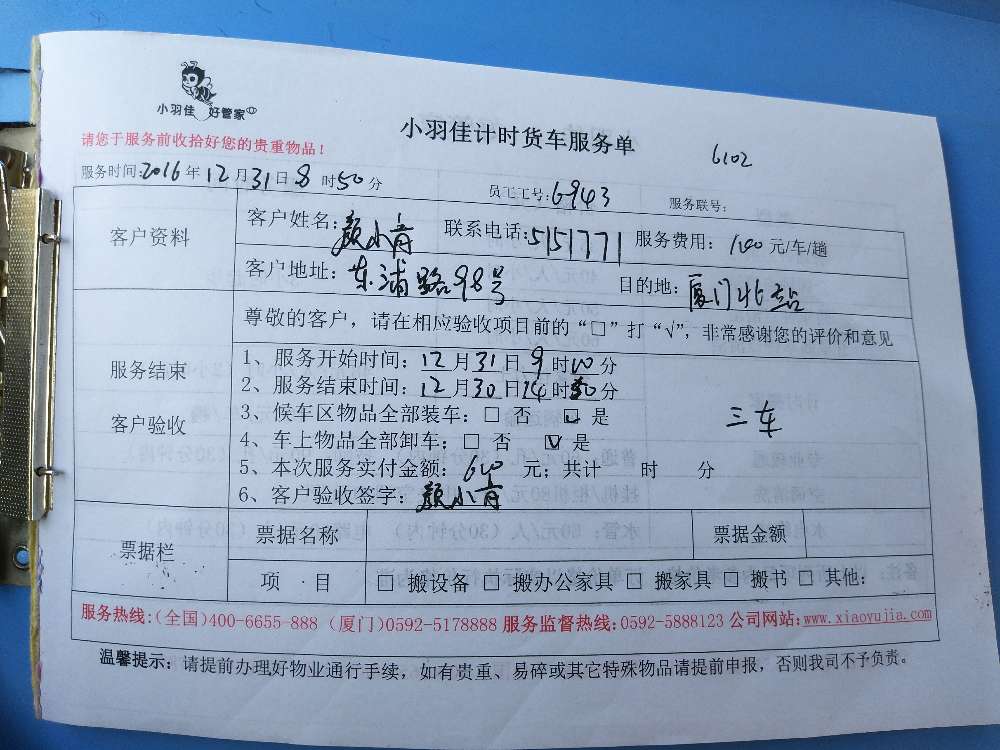 小羽佳 好管家
小羽佳计时货车服务单
6102
请您于服务前收拾好您的贵重物品！
服务时间:2016年12月31日8时50分 员工工号:6943 服务联号:
客户资料 客户姓名:颜小青 联系电话:5151771 服务费用: 元/车/趟
客户地址:东浦路98号 目的地:厦门北站
尊敬的客户，请在相应验收项目前的“□”打“√”，非常感谢您的评价和意见
服务结束
客户验收
1、服务开始时间:12月31日9时10分
2、服务结束时间:12月30日14时50分
3、候车区物品全部装车:□ 否 ☑ 是
4、车上物品全部卸车:□ 否 ☑ 是
三车
5、本次服务实付金额: 元;共计 时 分
6、客户验收签字:颜小青
票据栏 票据名称 票据金额
项 目 □ 搬设备 □ 搬办公家具 □ 搬家具 □ 搬书 □ 其他:
服务热线:(全国)400-6655-888 (厦门)0592-5178888 服务监督热线:0592-5888123 公司网站:www.xiaoyujia.com
温馨提示:请提前办理好物业通行手续，如有贵重、易碎或其它特殊物品请提前申报，否则我司不予负责。